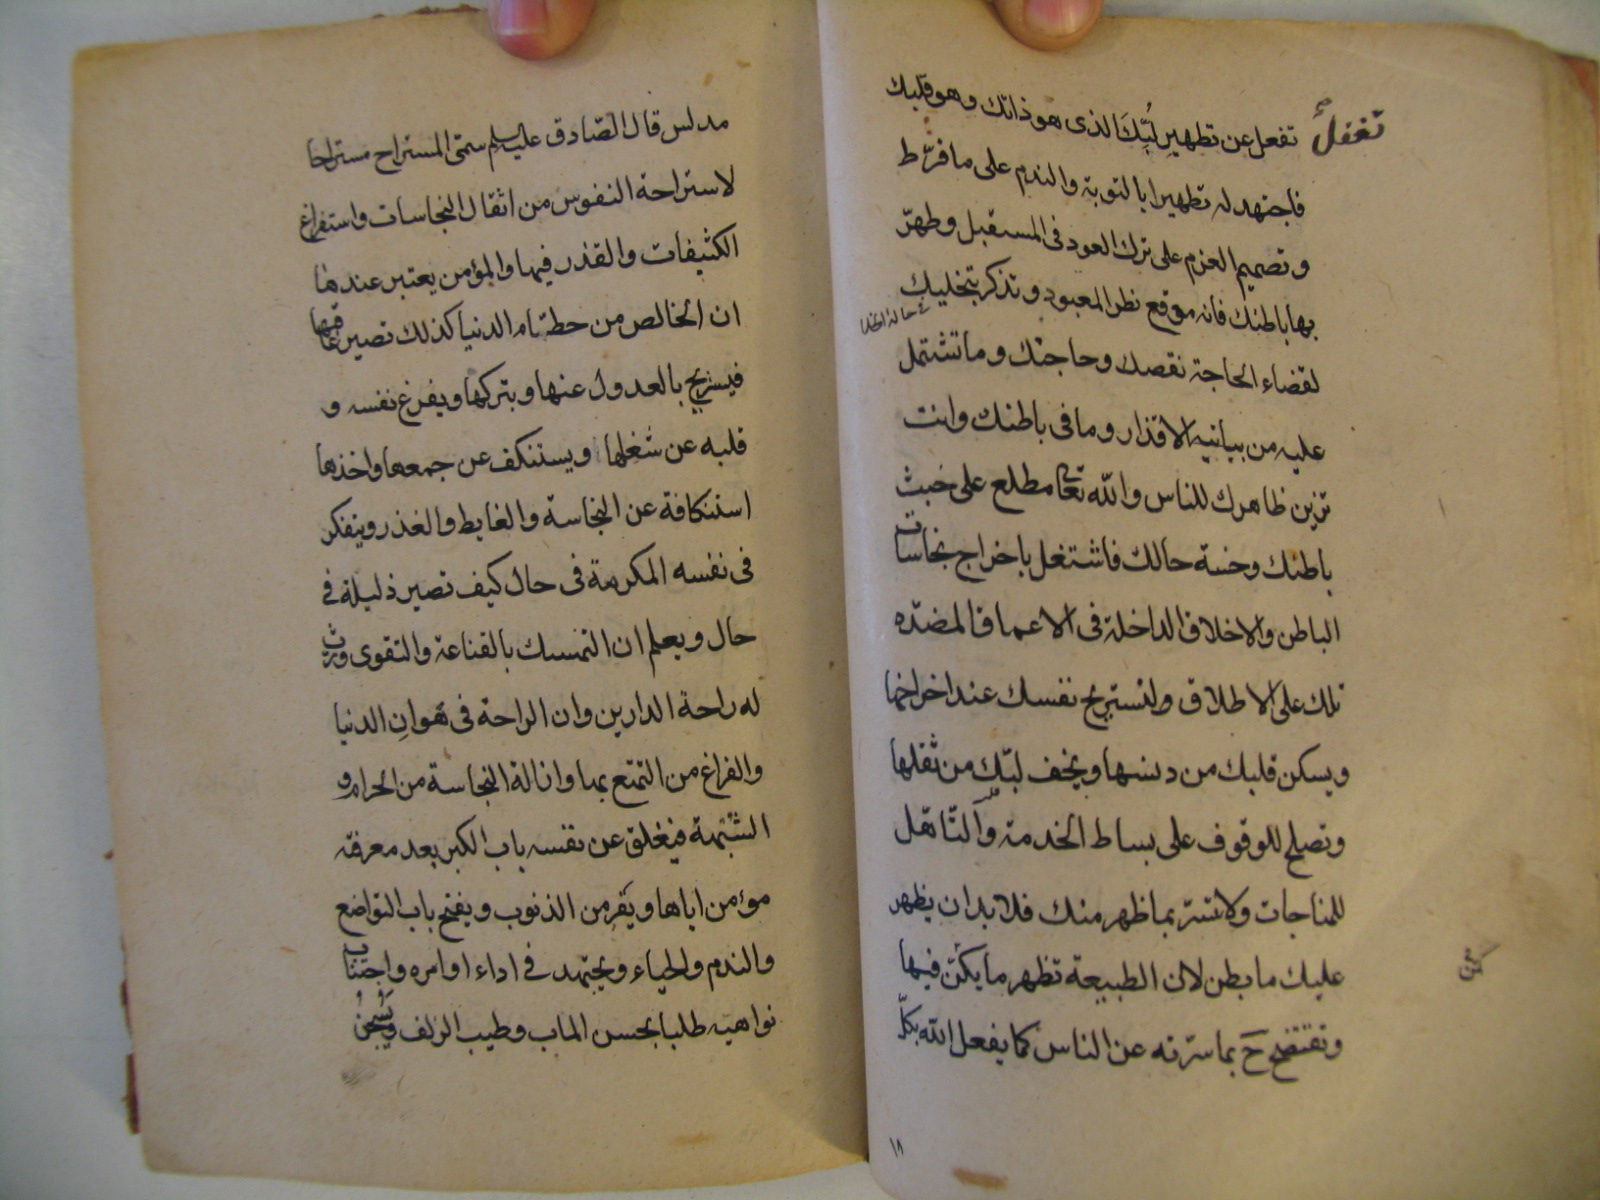 تغفل صح
تفعل عن تطهير لُبِّكَ الذى هو ذاتك وهو قلبك
فاجتهد له تطهيرا بالتوبة والندم على ما فرّط
وتصميم العزم على ترك العود فى المستقبل وطهّر
بها باطنك فانه موقع نظر المعبود وتذكر بتخليك
لقضاء الحاجة نقصك وحاجتك وما تشتمل
عليه من الاقذار وما فى باطنك وانت
تزين ظاهرك للناس والله تعا مطلع على خبث
باطنك وخسة حالك فاشتغل باخراج نجاسات
الباطن والاخلاق الداخلة فى الاعماق المضدّه
تلك على الاطلاق ولتستريح نفسك عند اخراجها
ويسكن قلبك من دنسها ويخف لبّك من ثقلها
وتصلح للوقوف على بساط الخدمة والتّاهل
للمناجات ولا تستر بما ظهر منك فلا بد ان يظهر
عليك ما بطن لان الطبيعة تظهر ما يكنّ فيها
وتفتضح حَ بما سرته عن الناس كما يفعل الله بكلّ
١٨
مدلس قال الصّادق عليه السلم سمّى المستراح مستراحا
لاستراحة النفوس من اثقال النجاسات واستفراغ
الكثيفات والقذر فيها والمؤمن يعتبر عندها
ان الخالص من حطام الدنيا كذلك تصير عاقبتها
فيستريح بالعدول عنها وبتركها ويفرغ نفسه و
قلبه عن شغلها ويستنكف عن جمعها واخذها
استنكافة عن النجاسة والغايط والغذر ويتفكر
فى نفسه المكرمة فى حال كيف تصير ذليلة فى
حال ويعلم ان التمسك بالقناعة والتقوى يورث
له راحة الدارين وان الراحة فى هوانِ الدنيا
والفراغ من التمتع بها وازالة النجاسة من الحرام و
الشبهة فيغلق عن نفسه باب الكبر بعد معرفته
اياها ويَفر من الذنوب ويفتح باب التواضع
والندم والحياء ويجتهد فى اداء اوامره واجتناب
نواهيه طلبا بحسن الماب وطيب الزلف ويَسْجنُ